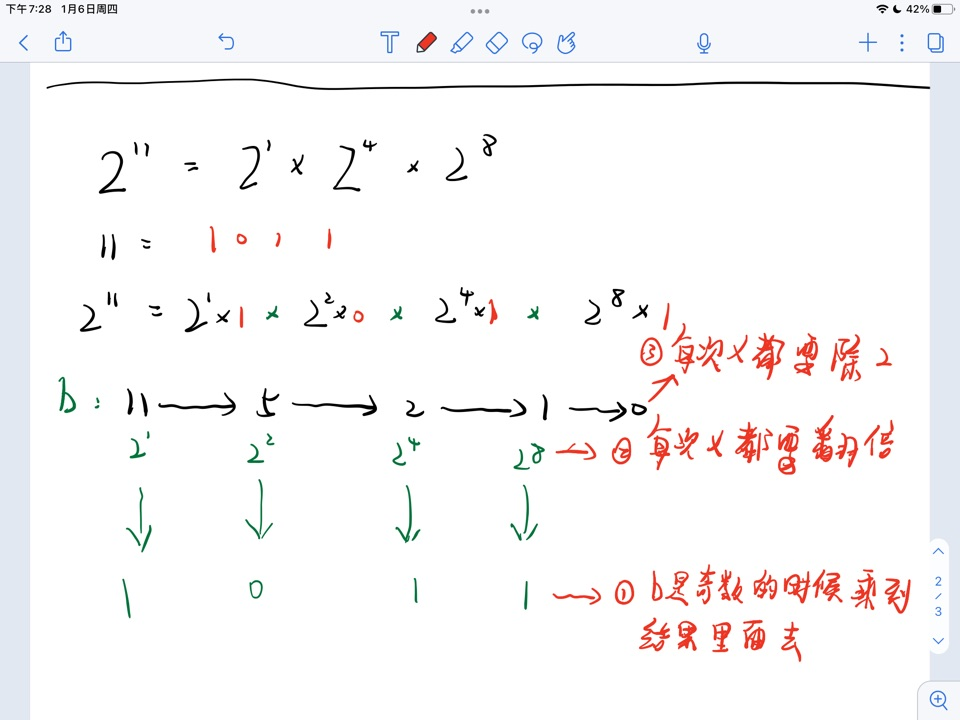 下午7:28 1月6日周四 42%
T
2¹¹ = 2¹ × 2⁴ × 2⁸
11 = 1 0 1 1
2¹¹ = 2¹×1 × 2²×0 × 2⁴×1 × 2⁸×1
③ 每次乂都要除2
b: 11 → 5 → 2 → 1 → 0
2¹ 2² 2⁴ 2⁸ → ② 每次乂都要翻倍
1 0 1 1 → ① b是奇数的时候乘到
结果里面去
2
/
3